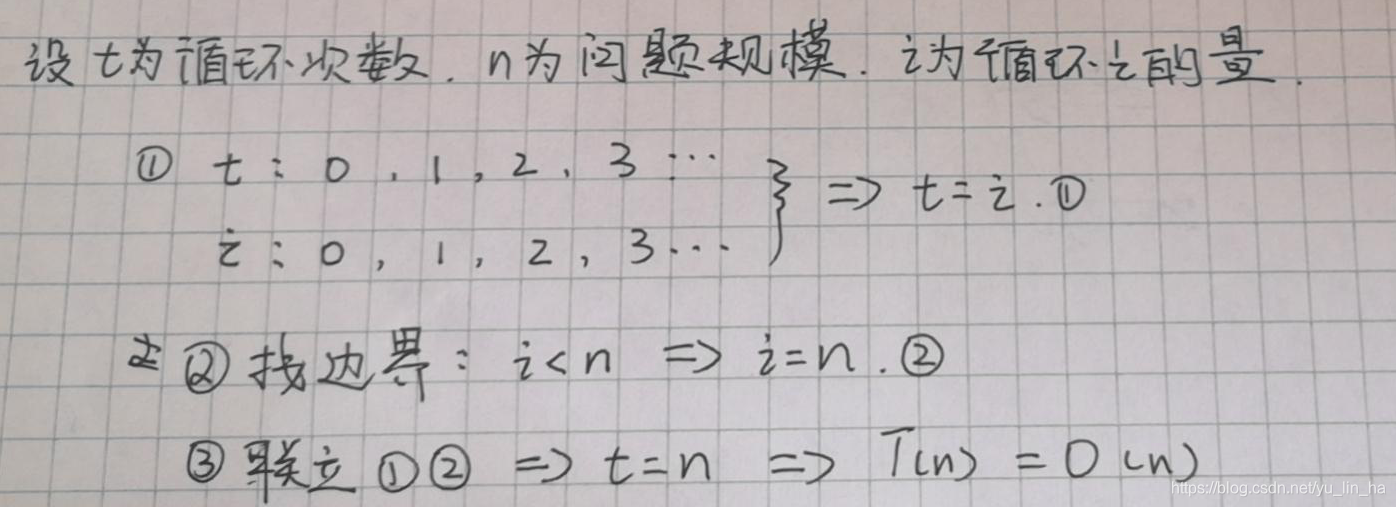 设 t为循环次数. n为问题规模. i为循环i的量.
① t: 0, 1, 2, 3 ...
} => t=i.①
i: 0, 1, 2, 3...
② 找边界: i<n => i=n.②
③ 联立①② => t=n => T(n) = O(n)
https://blog.csdn.net/yu_lin_ha